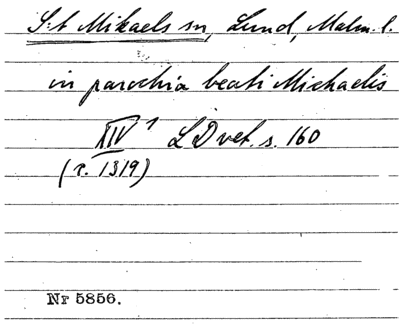 S:t Mikaels sn, Lund, Malm. l.
in parochia beati Michaelis
XIV 1 LD vet. s. 160
(c. 1319)
Nr 5856.